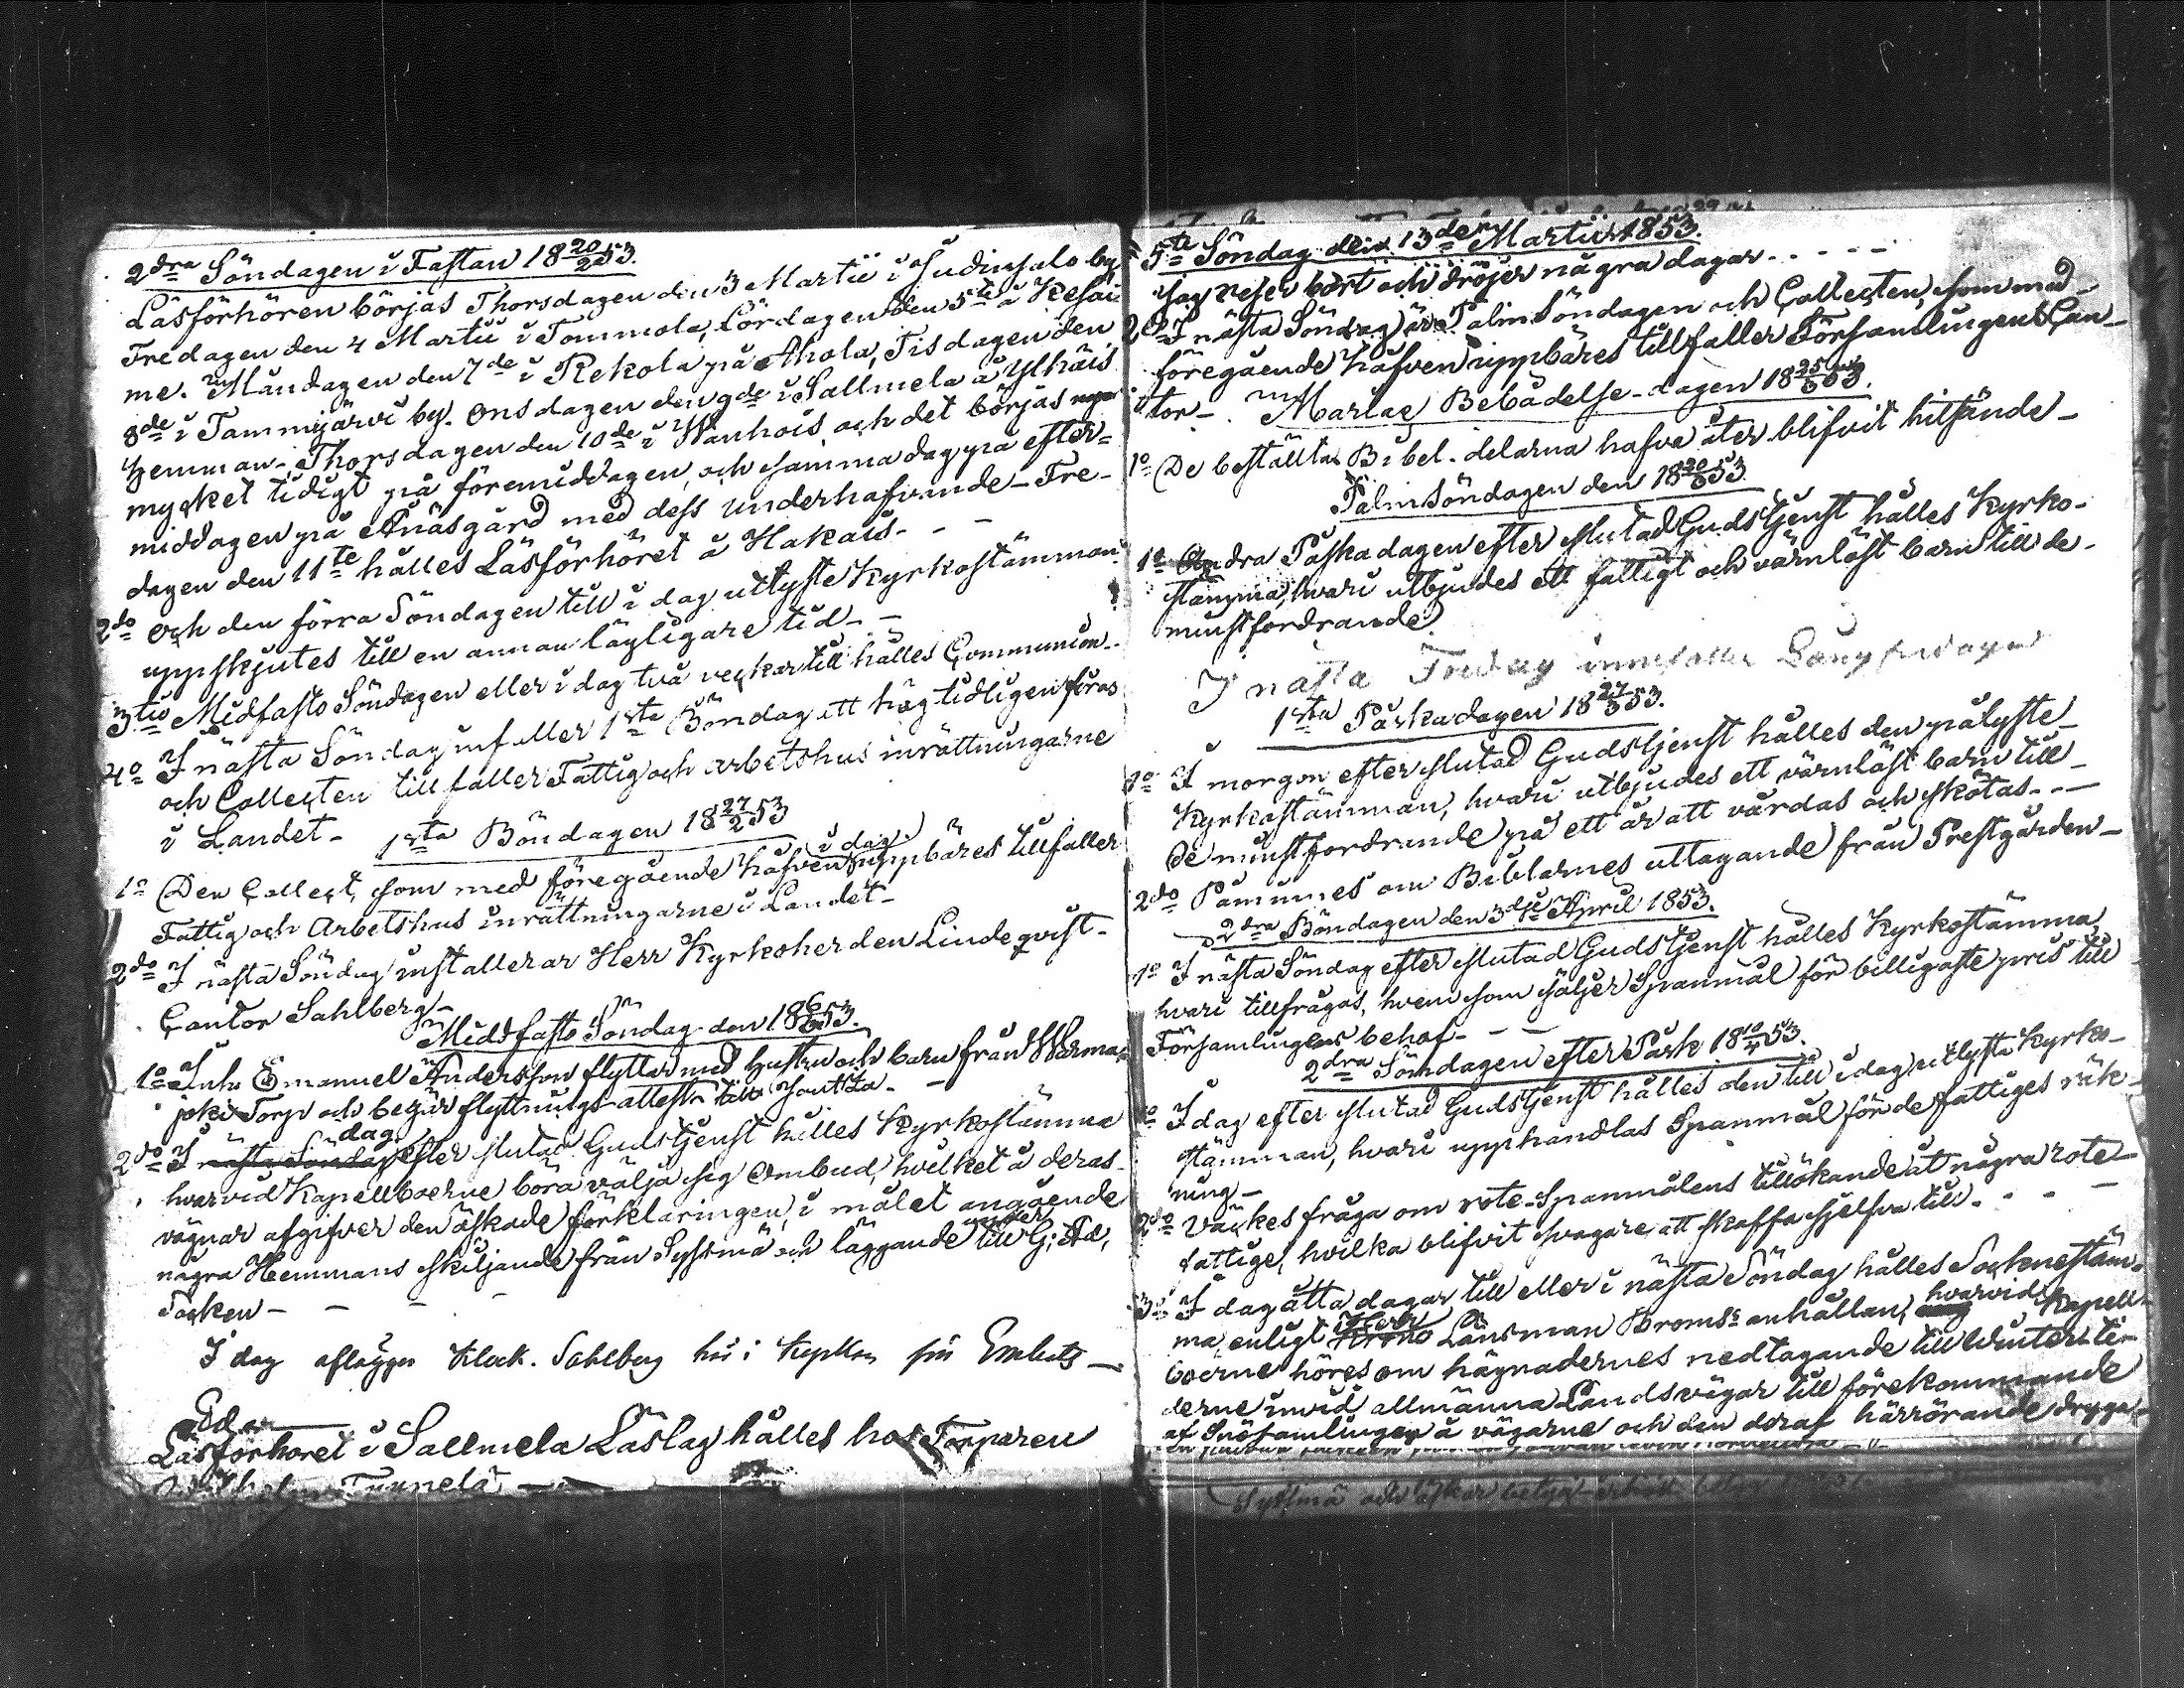 2dra Söndagen i Fastan 18 20/2 53.
Läsförhören börjas Thorsdagen den 3 Martii i Judinsalo by
Fredagen den 4 Martii i Tommola, Lördagen den 5te å Kesäi
me. Måndagen den 7de i Rekola på Ahola, Tisdagen den
8de i Tammijärvi by. Onsdagen den 9de i Sallmela å Ylhäis
Hemman. Thorsdagen den 10de i Wanhois och det börjas
mycket tidigt på föremiddagen, och samma dag på efter-
middagen på Anäsgård med dess underhafvande - Fre-
dagen den 11te hålles Läsförhöret å Hakais - -
2do Och den förra Söndagen till i dag utlyste Kyrkostämman
uppskjutes till en annan lägligare tid - -
3tio Midfasto Söndagen eller i dag två veckor till hålles Communion -
4o I nästa Söndag infaller 1sta Böndag att högtidligen firas
och Collecten tillfaller Fattig och arbetshus inrättningarne
i Landet -
1sta Böndagen 18 27/2 53
i dag
1o Den Collect, som med föregående håfven uppbäres tillfaller
Fattig och Arbetshus inrättningarne i Landet -
2do I nästa Söndag installerar Herr Kyrkoherden Lindeqvist -
Cantor Sahlberg -
Middfasto Söndag den 18 6/3 53.
1o Inh. Emanuel Andersson flyttar med Hustru och barn från Warma
joki Torp och begär flyttnings attest till Joutsa - -
dag
2do I nästa Söndag efter slutad Gudstjenst hålles Kyrkostämma
hvarvid Kapellboerne böra välja sig Ombud, hvilket å deras
vägnar afgifver den äskade förklaringen, i målet angående
några Hemmans skiljande från Sysmä och läggande under till G: Ad,
Socken - - - -
I dag aflägger Klock. Sahlberg här i kyrkan sin Embets -
Ed. -
Läsförhöret i Sallmela Läslag hålles hos Torparen
Tynnelä -
5te Söndag den 13de Martii 1853.
Jag reser bort och dröjer några dagar - - - -
2o I nästa Söndag är Palm Söndagen och Collecten, som med
föregående håfven uppbäres tillfaller Församlingens Can-
tor -
Mariae Bebådelse-dagen 18 25/3 53.
1o De beställta Bibel-delarna hafva åter blifvit hitsände -
Palm Söndagen den 18 20/3 53
1o Andra Påskadagen efter slutad Gudstjenst hålles Kyrko-
stämma, hvari utbjudes ett fattigt och värnlöst barn till de
minstfordrande
I nästa Fredag innefaller Långfredagen
1sta Påskadagen 18 27/3 53.
1o I morgon efter slutad Gudstjenst hålles den pålyste
Kyrkostämman, hvari utbjudes ett värnlöst barn till
de minstfordrande på ett år att vårdas och skötas - -
2do Påminnes om Biblarnes uttagande från Prestgården -
2dra Böndagen den 3dje April 1853.
1o I nästa Söndag efter slutad Gudstjenst hålles Kyrkostämma,
hvari tillfrågas, hvem som säljer Spanmål för billigaste pris till
Församlingens behof - -
2dra Söndagen efter Påsk 18 10/4 53.
1o I dag efter slutad Gudstjenst hålles den till i dag utlysta Kyrko-
stämman, hvari upphandlas Spanmål för de fattiges räk-
ning -
2do Väckes fråga om rote-Spanmålens tillökande åt några rote
fattige, hvilka blifvit svagare att skaffa sjelfva till - - -
3o I dag åtta dagar till eller i nästa Söndag hålles Sockneståm-
ma, enligt Herr Krono Länsman Broms anhållan, hvarvid Kapell-
boerne höres om hägnadernes nedtagande till Winterti-
derne invid allmänna Landsvägar till förekommande
af Snösamlingen å vägarne och den deraf härrörande dryga
Sysmä och